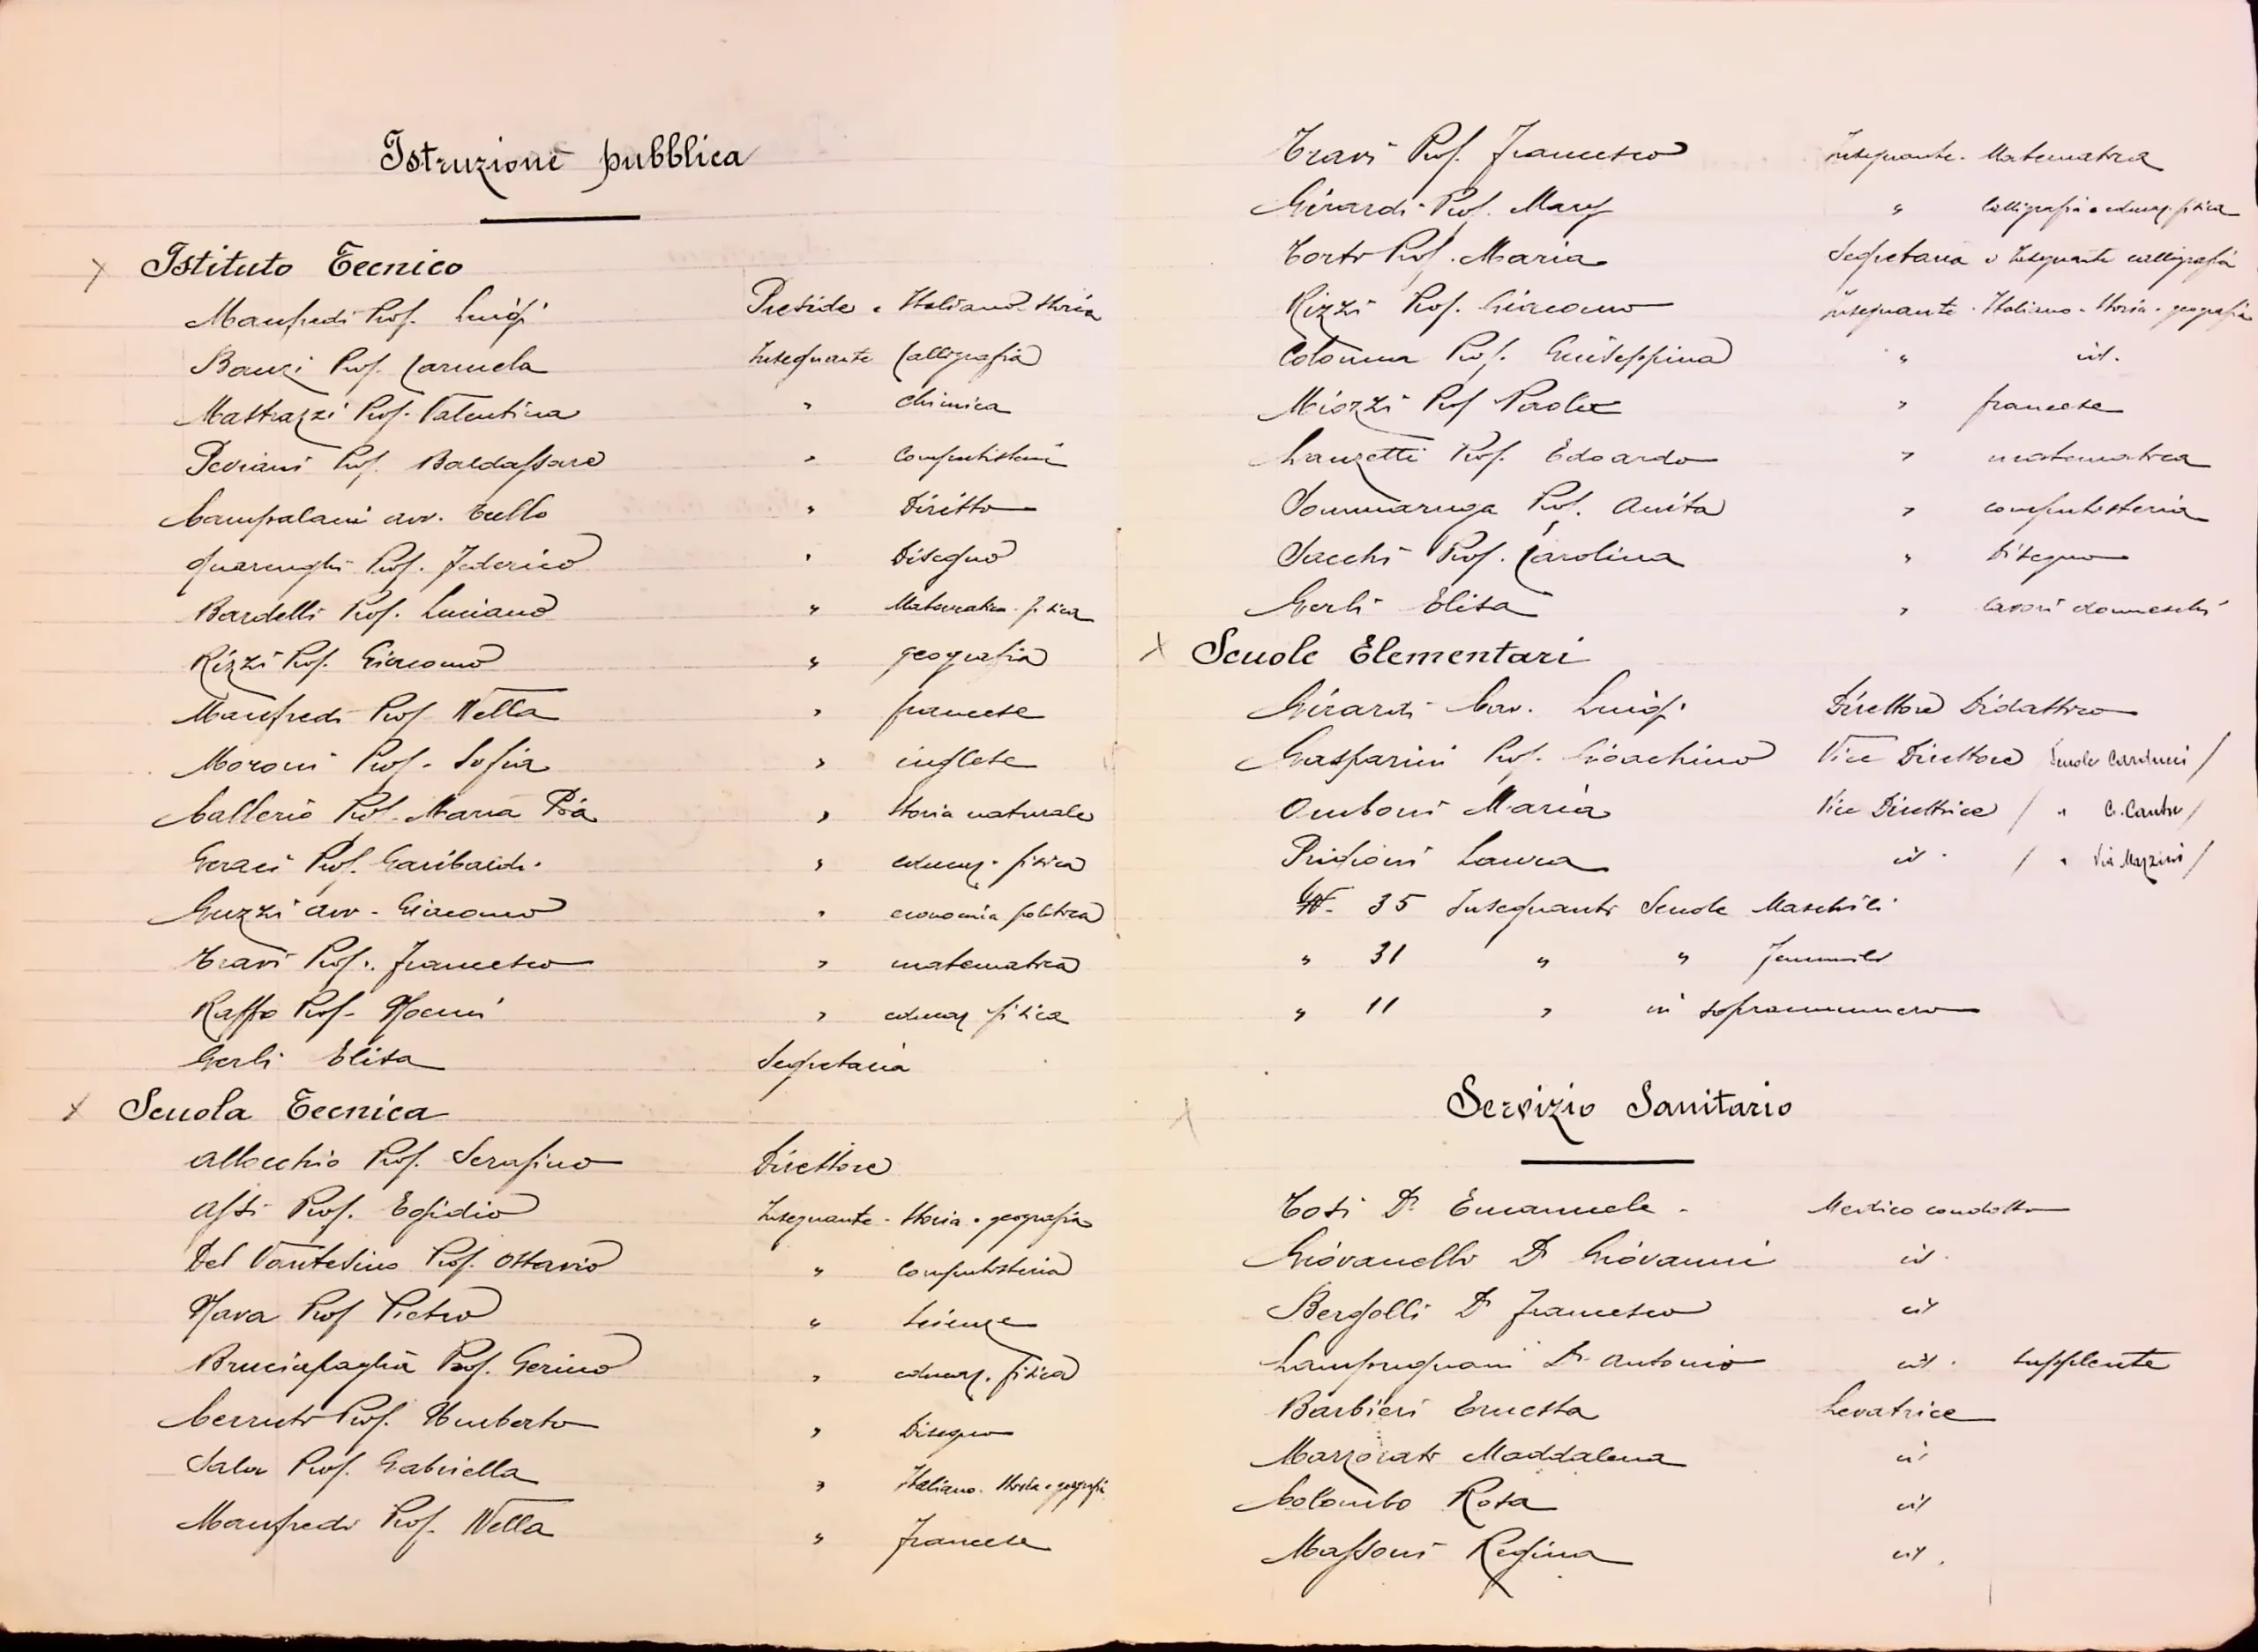 Istruzione pubblica
Istituto Tecnico
Manfredi Prof. Luigi Preside e Italiano Storia
Banzi Prof. Carmela Insegnante Calligrafia
Mastrazzi Prof. Valentina " chimica
Peviani Prof. Baldassare " Computisteria
Campalani avv. Tullo " Diritto
Quarenghi Prof. Federico " Disegno
Bardelli Prof. Luciano " Matematica - fisica
Rizzi Prof. Giacomo " geografia
Manfredi Prof Nella " francese
Moroni Prof. Sofia " inglese
Callerio Prof. Maria Pia " Storia naturale
Geraci Prof. Garibaldi " educaz. fisica
Guzzi avv. Giacomo " economia politica
Travi Prof. Francesco " matematica
Raffo Prof. Noemi " educaz fisica
Gerli Elisa Segretaria
Scuola Tecnica
Allocchio Prof. Serafino Direttore
Assi Prof. Egidio Insegnante - Storia e geografia
Del Vantesino Prof. Ottavio " Computisteria
Nava Prof Pietro " Scienze
Bruciapaglia Prof. Gerino " educaz. fisica
Cerruti Prof. Umberto " Disegno
Sala Prof. Gabriella " Italiano - Storia e geografia
Manfredi Prof. Nella " Francese
Travi Prof. Francesco Insegnante - Matematica
Girardi Prof. Mary " Calligrafia e educaz. fisica
Torti Prof. Maria Segretaria e Insegnante calligrafia
Rizzi Prof. Giacomo Insegnante - Italiano - Storia - geografia
Colonna Prof. Giuseppina " id.
Miozzi Prof Paola " francese
Lanzetti Prof. Edoardo " matematica
Sommaruga Prof. Anita " computisteria
Sacchi Prof. Carolina " Disegno
Gerli Elisa " lavori donneschi
Scuole Elementari
Girardi Cav. Luigi Direttore Didattico
Gasparini Prof. Gioachino Vice Direttore Scuole Carducci /
Omboni Maria Vice Direttrice / " C. Cantù /
Laura id. / " Via Mazzini /
N. 35 Insegnanti Scuole Maschili
" 31 " " Femminili
" 11 " in soprannumero
Servizio Sanitario
Tosi Dr Emanuele - Medico condotto
Giovanello Dr Giovanni id.
Bergolli Dr Francesco id
Lampugnani Dr Antonio id. supplente
Barbieri Ernesta Levatrice
Marzorati Maddalena id
Colombo Rosa id
Massoni Regina id.